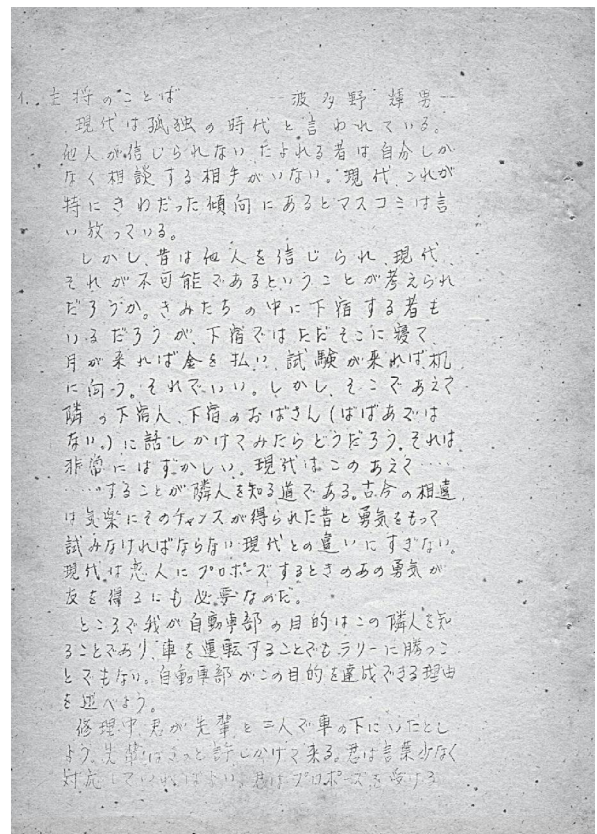 1. 主将のことば ―波多野 輝男―
現代は孤独の時代と言われている。
他人が信じられない、たよれる者は自分しか
なく相談する相手がいない。現代、これが
特にきわだった傾向にあるとマスコミは言
い放っている。
しかし、昔は他人を信じられ、現代、
それが不可能であるということが考えられ
だろうか。きみたちの中に下宿する者も
いるだろうが、下宿ではただそこに寝て、
月が来れば金を払い、試験が来れば机
に向う。それでいい。しかし、そこであえて
隣の下宿人、下宿のおばさん(ばばあでは
ない。)に話しかけてみたらどうだろう。それは、
非常にはずかしい。現代はこのあえて……
……することが隣人を知る道である。古今の相違
は気楽にそのチャンスが得られた昔と勇気をもって
試みなければならない現代との違いにすぎない。
現代は恋人にプロポーズするときのあの勇気が
友を得るにも必要なのだ。
ところで我が自動車部の目的はこの隣人を知
ることであり、車を運転することでも、ラリーに勝つこ
とでもない。自動車部がこの目的を達成できる理由
を述べよう。
修理中、君が先輩と二人で車の下にいたとし
よう。先輩はきっと話しかけて来る。君は言葉少なく
対応していればよい。君はプロポーズを受ける